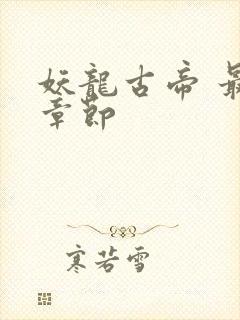 妖龍古帝 最
章節
寒若雪